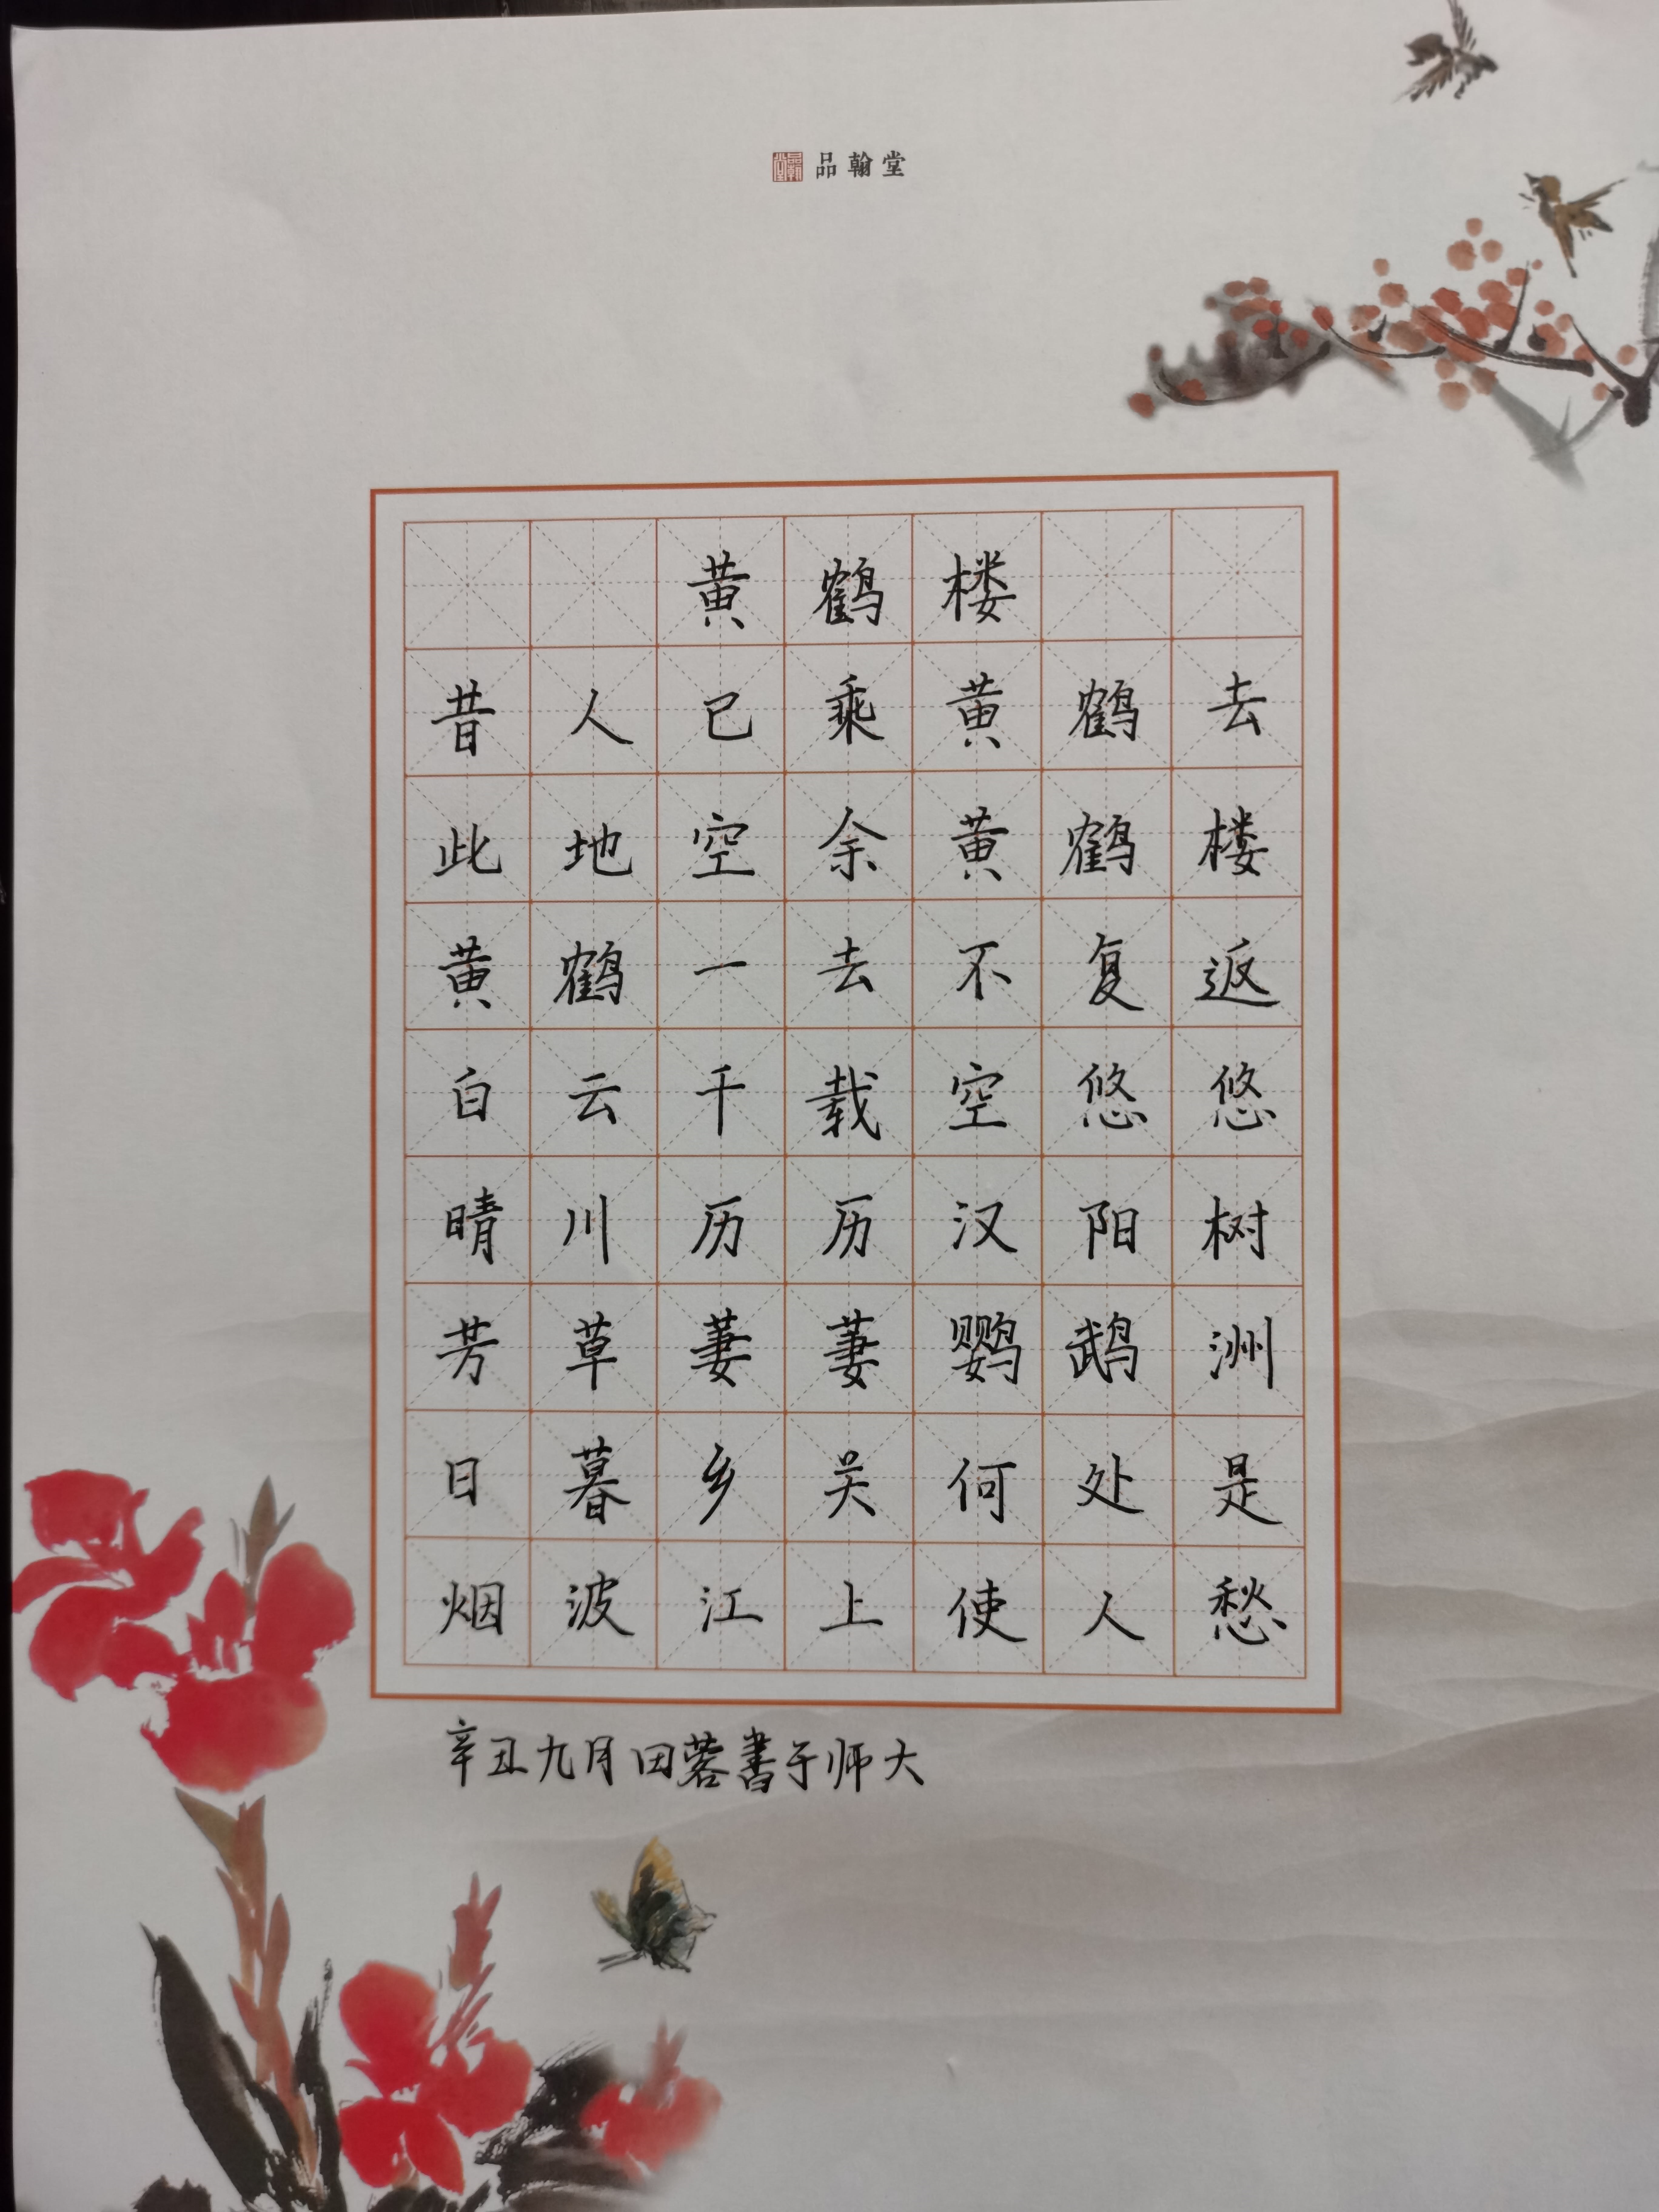 品翰堂
黄鹤楼
昔人已乘黄鹤去
此地空余黄鹤楼
黄鹤一去不复返
白云千载空悠悠
晴川历历汉阳树
芳草萋萋鹦鹉洲
日暮乡关何处是
烟波江上使人愁
辛丑九月田蓉書于师大